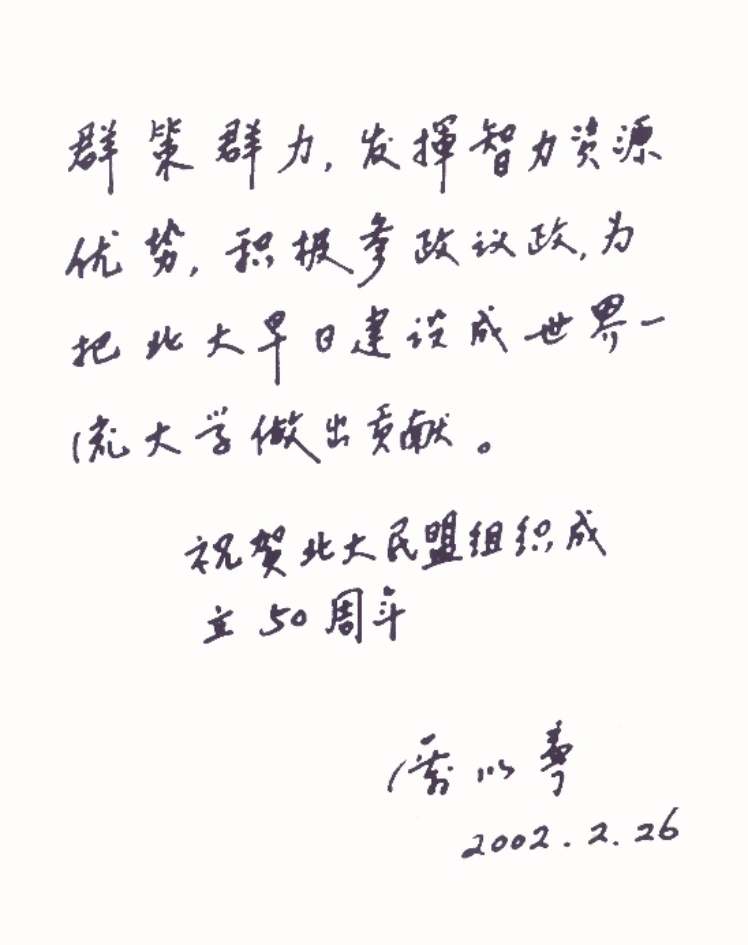 群策群力，发揮智力资源
优势，积极参政议政，为
把北大早日建设成世界一
流大学做出贡献。
祝贺北大民盟组织成
立50周年
厉以宁
2002.2.26